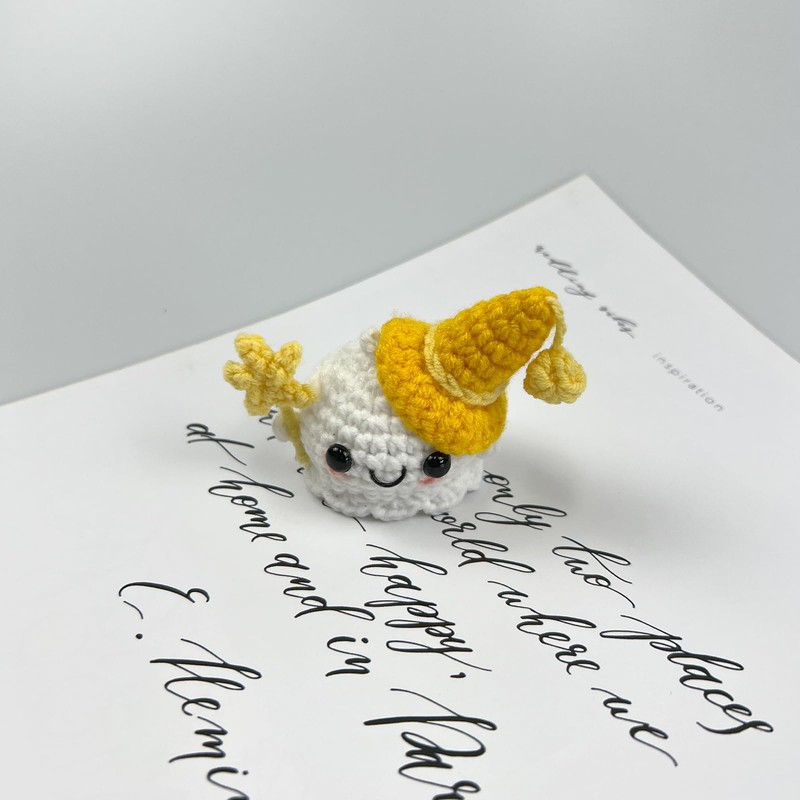 inspiration
only two places
orld where we
happy,
at home and in Par
E. Hemin